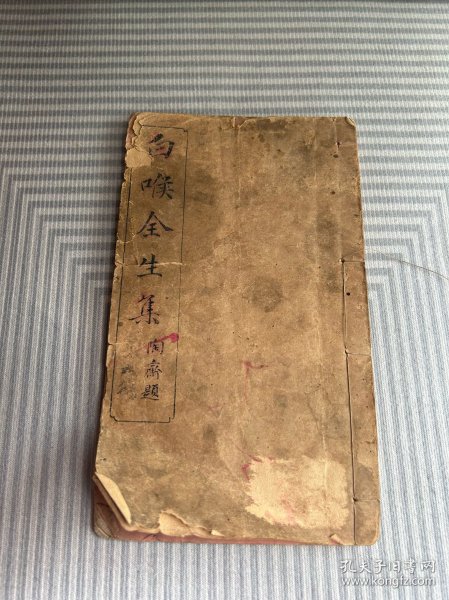 白喉全生集
陶齋題
孔夫子旧书网
www.kongfz.com